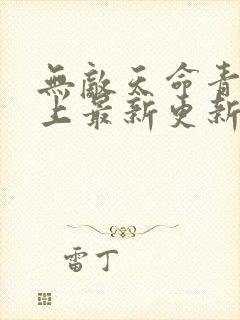 無敵天命青
上最新更新
雷丁